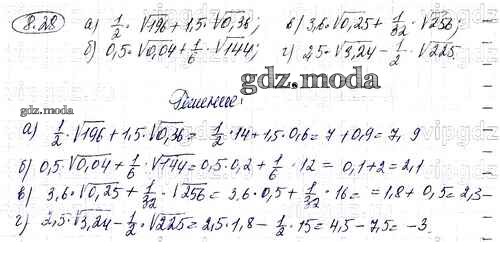 8.28 а) 1/2 · √196 + 1,5 · √0,36; в) 3,6 · √0,25 + 1/32 · √256;
б) 0,5 · √0,04 + 1/6 · √144; г) 2,5 · √3,24 − 1/2 · √225
gdz.moda
gdz.moda
Решение:
а) 1/2 · √196 + 1,5 · √0,36 = 1/2 · 14 + 1,5 · 0,6 = 7 + 0,9 = 7,9
б) 0,5 · √0,04 + 1/6 · √144 = 0,5 · 0,2 + 1/6 · 12 = 0,1 + 2 = 2,1
в) 3,6 · √0,25 + 1/32 · √256 = 3,6 · 0,5 + 1/32 · 16 = = 1,8 + 0,5 = 2,3
г) 2,5 · √3,24 − 1/2 · √225 = 2,5 · 1,8 − 1/2 · 15 = 4,5 − 7,5 = −3